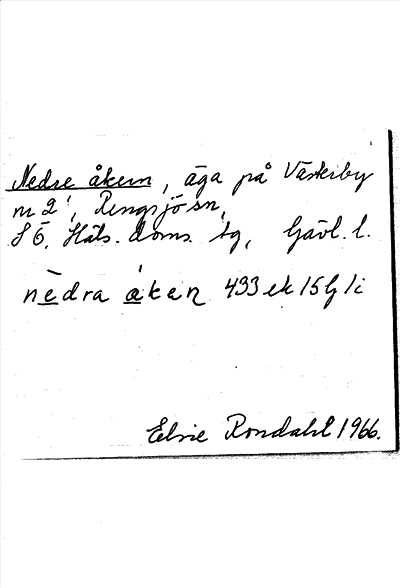 Nedre åkern, äga på Västerby
nr 2¹, Rengsjö sn,
S Ö. Häls. doms. tg, Gävl. l.
nèdra ákeɳ 433 ek 15G 1i
Elsie Rondahl 1966.